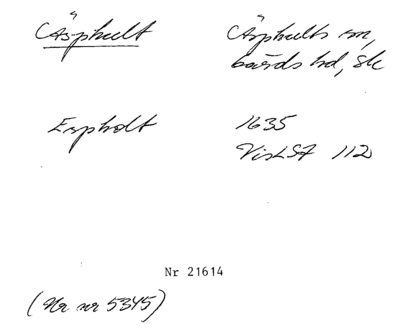 Åsphult Åsphults sn,
Gärds hd, Sk
Espholt 1635
VisLSA 112
Nr 21614
(Nr nr 5345)